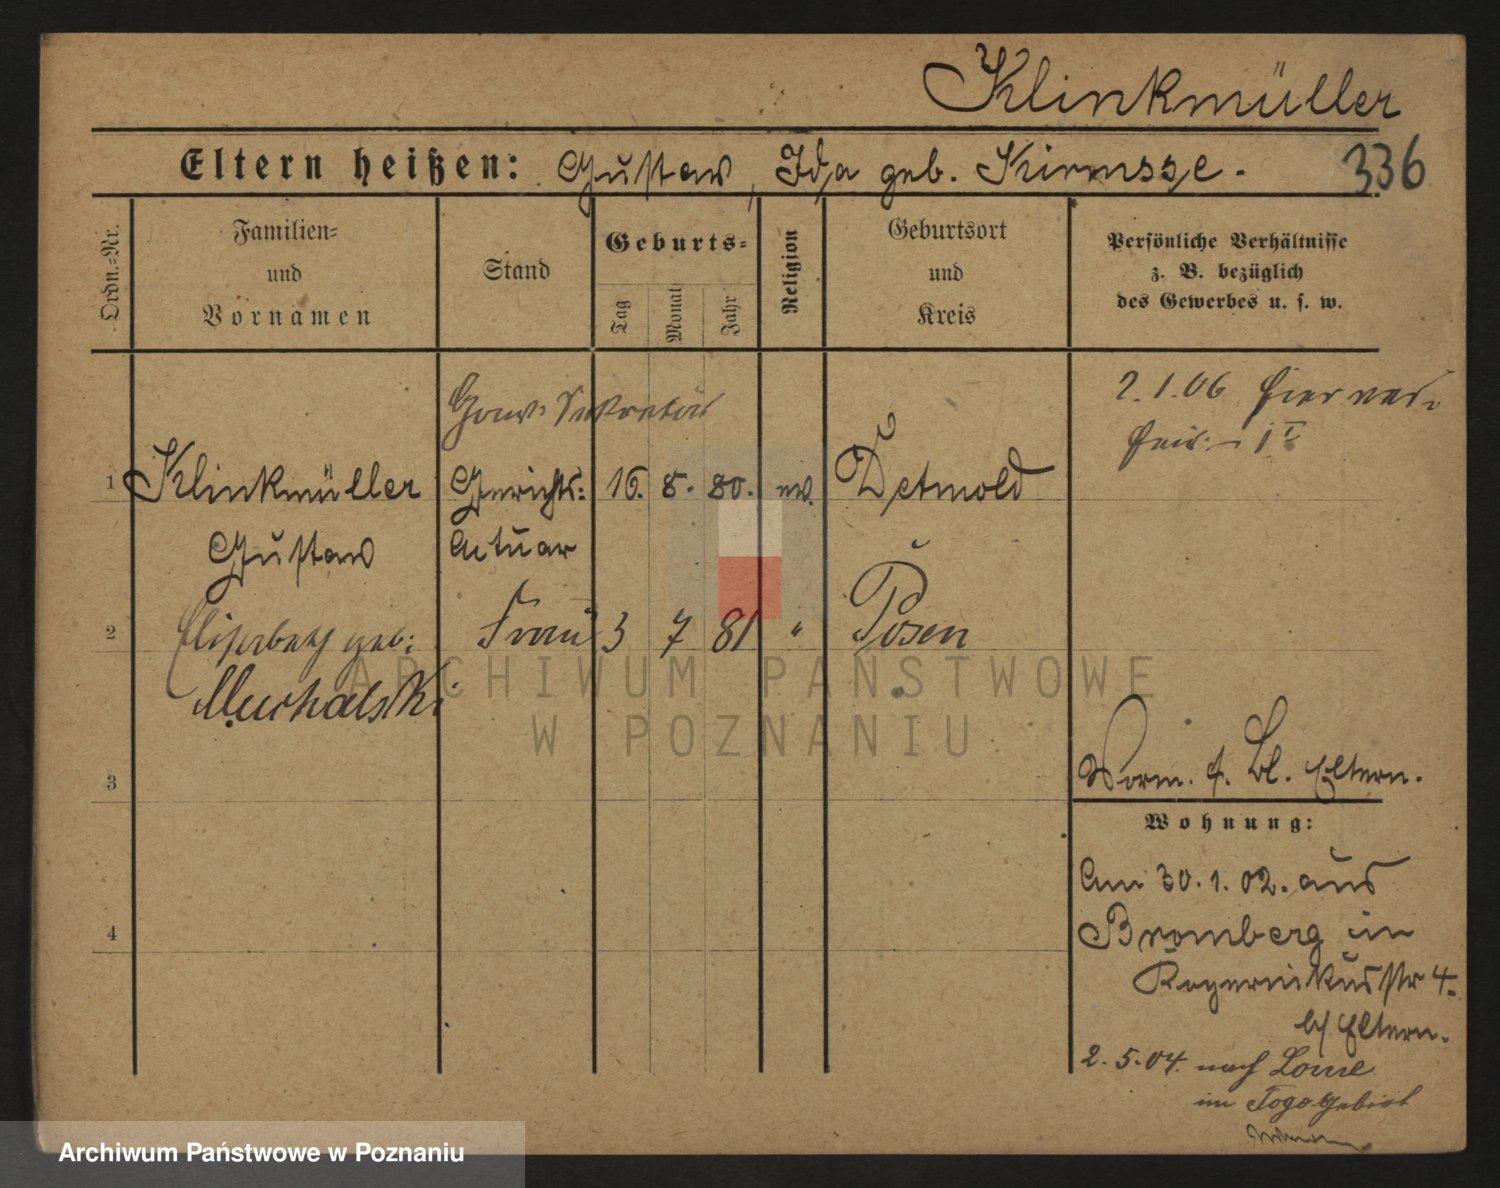 Klinkmüller
Eltern heißen: Gustav, Ida geb. Kirmsse. 336
Ordn.-Nr.
Familien- und Vornamen
Stand
Geburts-
Tag Monat Jahr
Religion
Geburtsort und Kreis
Persönliche Verhältnisse
z. B. bezüglich
des Gewerbes u. s. w.
Gouv. Sekretär
2.1.06 hier
1 Klinkmüller Gerichts- 16. 8. 80. ev. Detmold
Gustav Actuar
2 Elisabeth geb. Frau 3 7 81 " Posen
Muchalski
3
4
Vorm. f. Bl. Eltern.
Wohnung:
Am 30.1.02. aus
Bromberg in
Kopernikusstr 4.
b/ Eltern.
2.5.04. nach Lome
im Togogebiet
ARCHIWUM PAŃSTWOWE
W POZNANIU
Archiwum Państwowe w Poznaniu